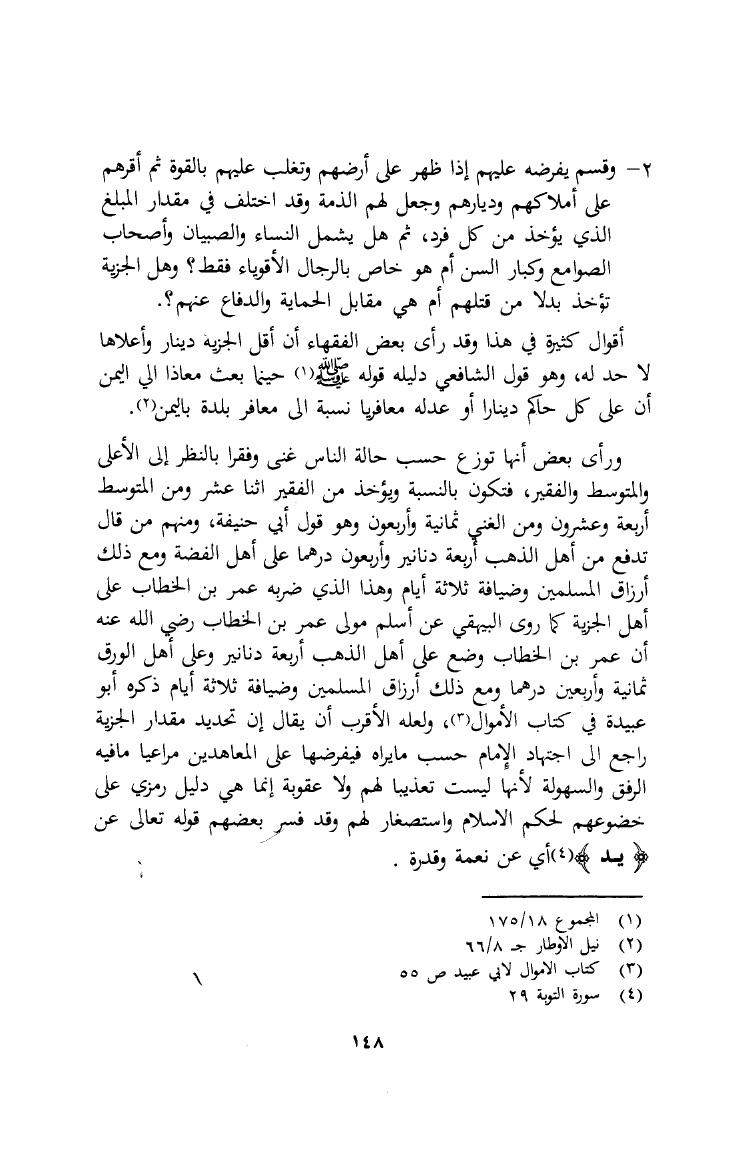 ٢ – وقسم يفرضه عليهم إذا ظهر على أرضهم وتغلب عليهم بالقوة ثم أقرهم
على أملاكهم وديارهم وجعل لهم الذمة وقد اختلف في مقدار المبلغ
الذي يؤخذ من كل فرد، ثم هل يشمل النساء والصبيان وأصحاب
الصوامع وكبار السن أم هو خاص بالرجال الأقوياء فقط؟ وهل الجزية
تؤخذ بدلا من قتلهم أم هي مقابل الحماية والدفاع عنهم؟.
أقوال كثيرة في هذا وقد رأى بعض الفقهاء أن أقل الجزية دينار وأعلاها
لا حد له، وهو قول الشافعي دليله قوله ﷺ(١) حينما بعث معاذا الي اليمن
أن على كل حاكم دينارا أو عدله معافريا نسبة الى معافر بلدة باليمن(٢).
ورأى بعض أنها توزع حسب حالة الناس غنى وفقرا بالنظر إلى الأعلى
والمتوسط والفقير، فتكون بالنسبة ويؤخذ من الفقير اثنا عشر ومن المتوسط
أربعة وعشرون ومن الغني ثمانية وأربعون وهو قول أبي حنيفة، ومنهم من قال
تدفع من أهل الذهب أربعة دنانير وأربعون درهما على أهل الفضة ومع ذلك
أرزاق المسلمين وضيافة ثلاثة أيام وهذا الذي ضربه عمر بن الخطاب على
أهل الجزية كما روى البيهقي عن أسلم مولى عمر بن الخطاب رضي الله عنه
أن عمر بن الخطاب وضع على أهل الذهب أربعة دنانير وعلى أهل الورق
ثمانية وأربعين درهما ومع ذلك أرزاق المسلمين وضيافة ثلاثة أيام ذكره أبو
عبيدة في كتاب الأموال(٣)، ولعله الأقرب أن يقال إن تحديد مقدار الجزية
راجع الى اجتهاد الإمام حسب مايراه فيفرضها على المعاهدين مراعيا مافيه
الرفق والسهولة لأنها ليست تعذيبا لهم ولا عقوبة إنما هي دليل رمزي على
خضوعهم لحكم الاسلام واستصغار لهم وقد فسر بعضهم قوله تعالى عن
﴿ يد ﴾(٤)أي عن نعمة وقدرة .
(١) المجموع ١٧٥/١٨
(٢) نيل الأوطار جـ ٦٦/٨
(٣) كتاب الاموال لابي عبيد ص ٥٥
(٤) سورة التوبة ٢٩
١٤٨